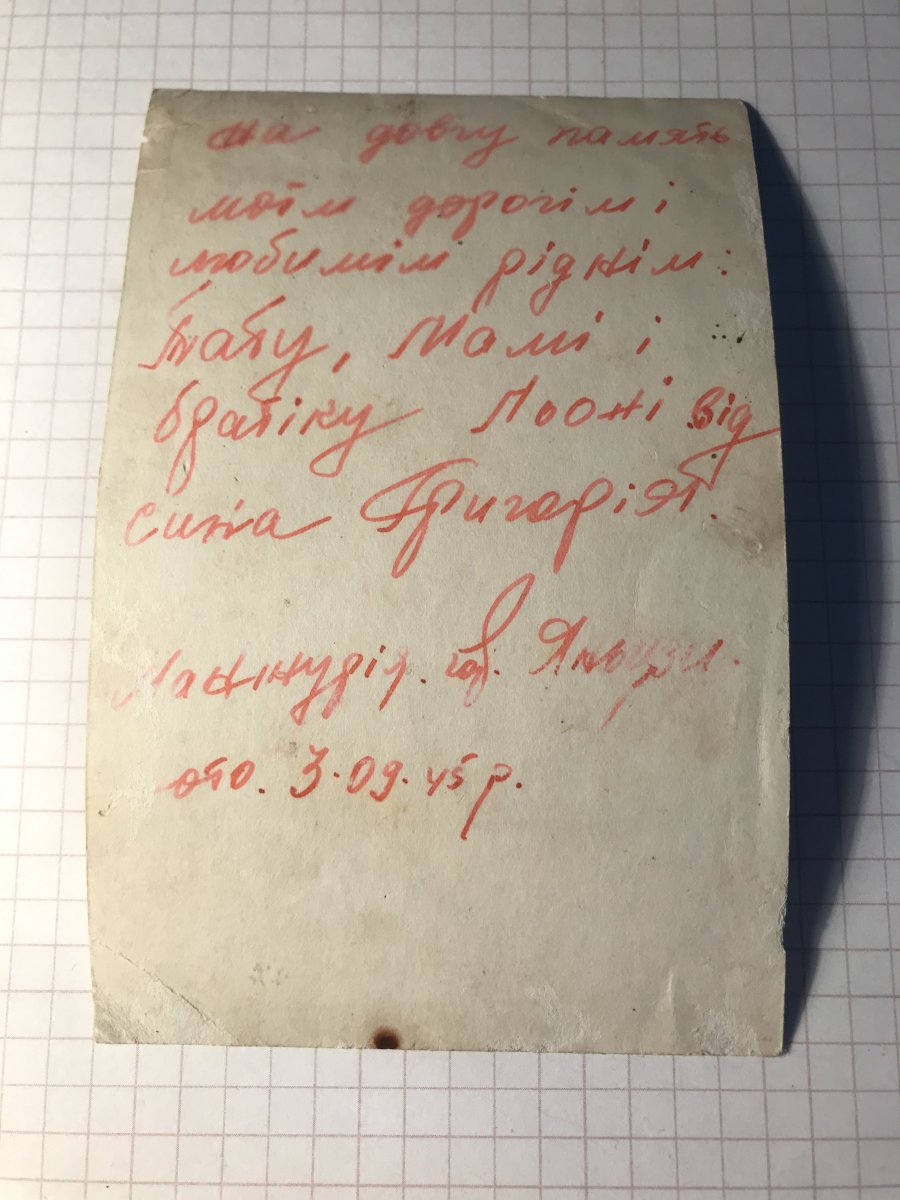 На довгу память
моїм дорогім і
любимім рідн��м:
Тату, Мамі і
братіку Льоні від
сина Григорія.
Манжурія. гор. Яньцзи.
ото. 3.09.45 р.